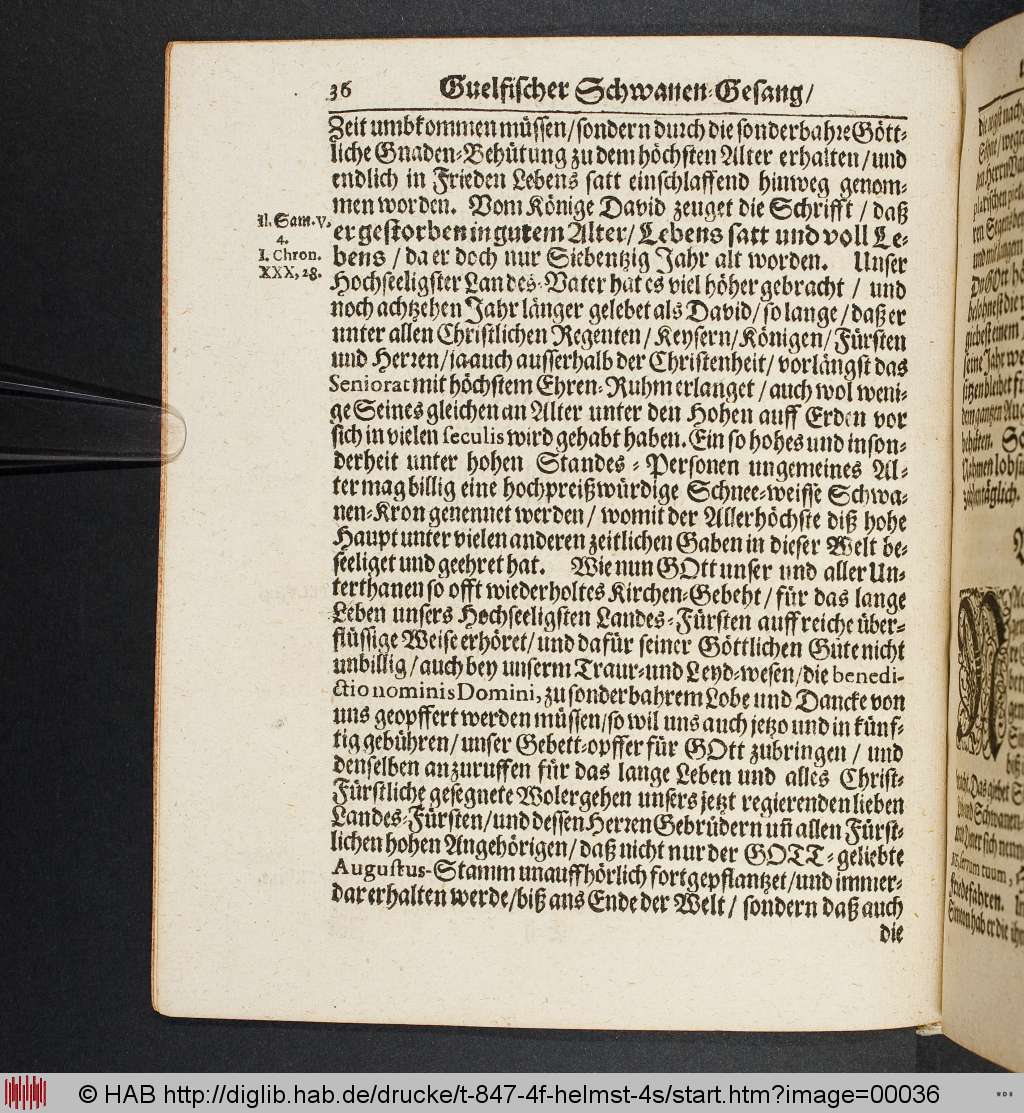 36 Guelfischer Schwanen-Gesang/
Zeit umbkommen müssen/sondern durch die sonderbahre Gött-
liche Gnaden-Behütung zu dem höchsten Alter erhalten/und
endlich in Frieden Lebens satt einschlaffend hinweg genom-
men worden. Vom Könige David zeuget die Schrifft/ daß
II. Sam. V.
4.
er gestorben in gutem Alter/ Lebens satt und voll Le-
I. Chron.
XXX, 28.
bens / da er doch nur Siebentzig Jahr alt worden. Unser
Hochseeligster Landes-Vater hat es viel höher gebracht / und
noch achtzehen Jahr länger gelebet als David/ so lange/ daß er
unter allen Christlichen Regenten/ Keysern/ Königen/ Fürsten
und Herren/ ja auch ausserhalb der Christenheit/ vorlängst das
Seniorat mit höchstem Ehren-Ruhm erlanget / auch wol weni-
ge Seines gleichen an Alter unter den Hohen auff Erden vor
sich in vielen seculis wird gehabt haben. Ein so hohes und inson-
derheit unter hohen Standes-Personen ungemeines Al-
ter mag billig eine hochpreißwürdige Schnee-weisse Schwa-
nen-Kron genennet werden/ womit der Allerhöchste diß hohe
Haupt unter vielen anderen zeitlichen Gaben in dieser Welt be-
seeliget und geehret hat. Wie nun GOtt unser und aller Un-
terthanen so offt wiederholtes Kirchen-Gebeht/ für das lange
Leben unsers Hochseeligsten Landes-Fürsten auff reiche über-
flüssige Weise erhöret/ und dafür seiner Göttlichen Güte nicht
unbillig/ auch bey unserm Traur-und Leyd-wesen/die benedi-
ctio nominis Domini, zu sonderbahrem Lobe und Dancke von
uns geopffert werden müssen/so wil uns auch jetzo und in künf-
tig gebühren/ unser Gebett-opffer für GOtt zubringen / und
denselben anzuruffen für das lange Leben und alles Christ-
Fürstliche gesegnete Wolergehen unsers jetzt regierenden lieben
Landes-Fürsten/und dessen Herren Gebrüdern uñ allen Fürst-
lichen hohen Angehörigen/ daß nicht nur der GOTT-geliebte
Augustus-Stamm unauffhörlich fortgepflantzet/und immer-
dar erhalten werde/biß ans Ende der Welt/ sondern daß auch
die
© HAB http://diglib.hab.de/drucke/t-847-4f-helmst-4s/start.htm?image=00036